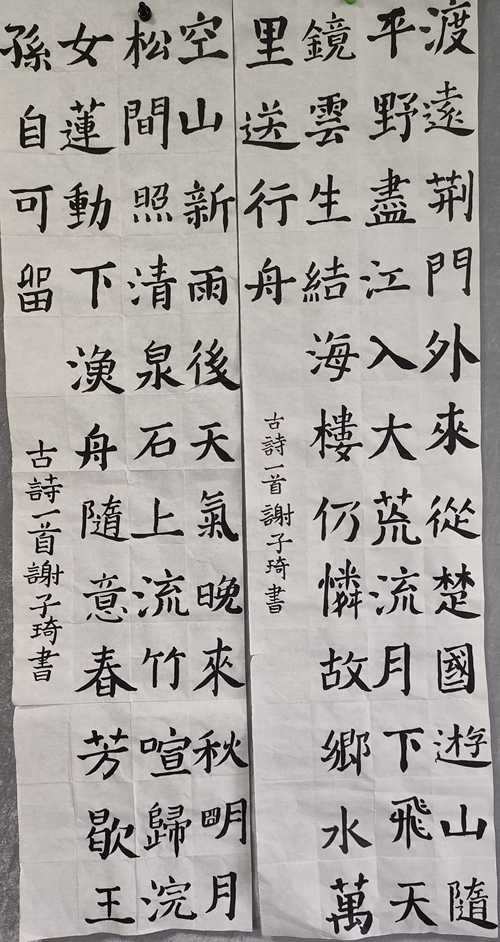 渡遠荊門外來從楚國遊山隨
平野盡江入大荒流月下飛天
鏡雲生結海樓仍憐故鄉水萬
里送行舟
古詩一首謝子琦書
空山新雨後天氣晚來秋明月
松間照清泉石上流竹喧歸浣
女蓮動下漁舟隨意春芳歇王
孫自可留
古詩一首謝子琦書